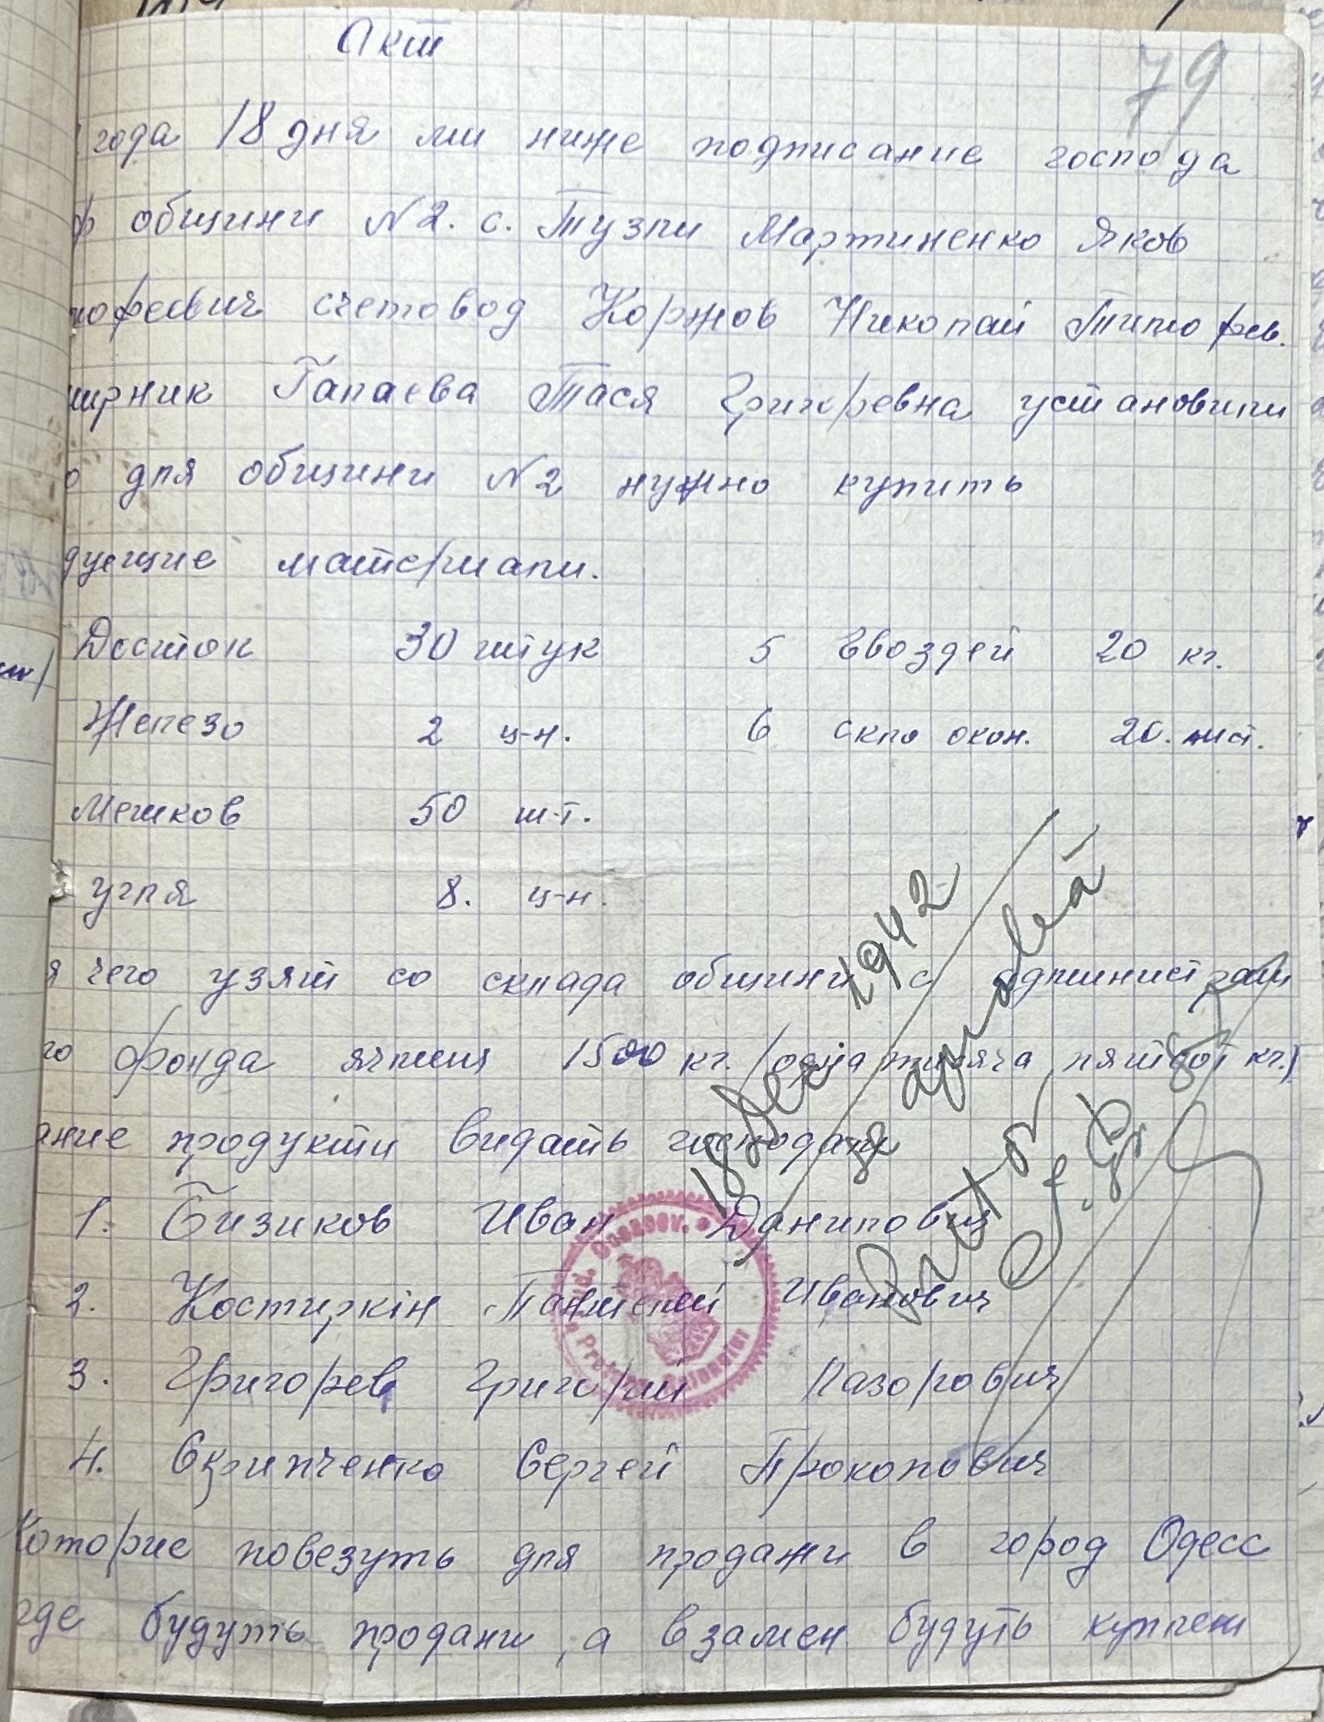 Акт
79
года 18 дня ми ниже подписание господа
общини N2. с. Тузли Мартиненко Яков
мофеевич счетовод Коржов Николай Тимофев.
мирник Галаева Тася Григоревна установили
о для общини N2 нужно купить
дуещие материали.
Досток 30 штук 5 Гвоздей 20 кг.
Железо 2 ц-н. 6 скло окон. 20. лист.
Мешков 50 ш-т.
угля 8. ц-н.
я чего узят со склада общини с администрати
го фонда ячменя 1500 кг. /одна тисяча пятсот кг.)
ание продукти видать господам
1. Бизиков Иван Данилович
2. Костиркін Пантелей Иванович
3. Григорев Григорий Лазорович
4. Скрипченко Сергей Прокопович
Которие повезуть для продажи в город Одесс
где будуть продани, а взамен будуть куплени
18 Dec 1942
se aprobă
Pretor